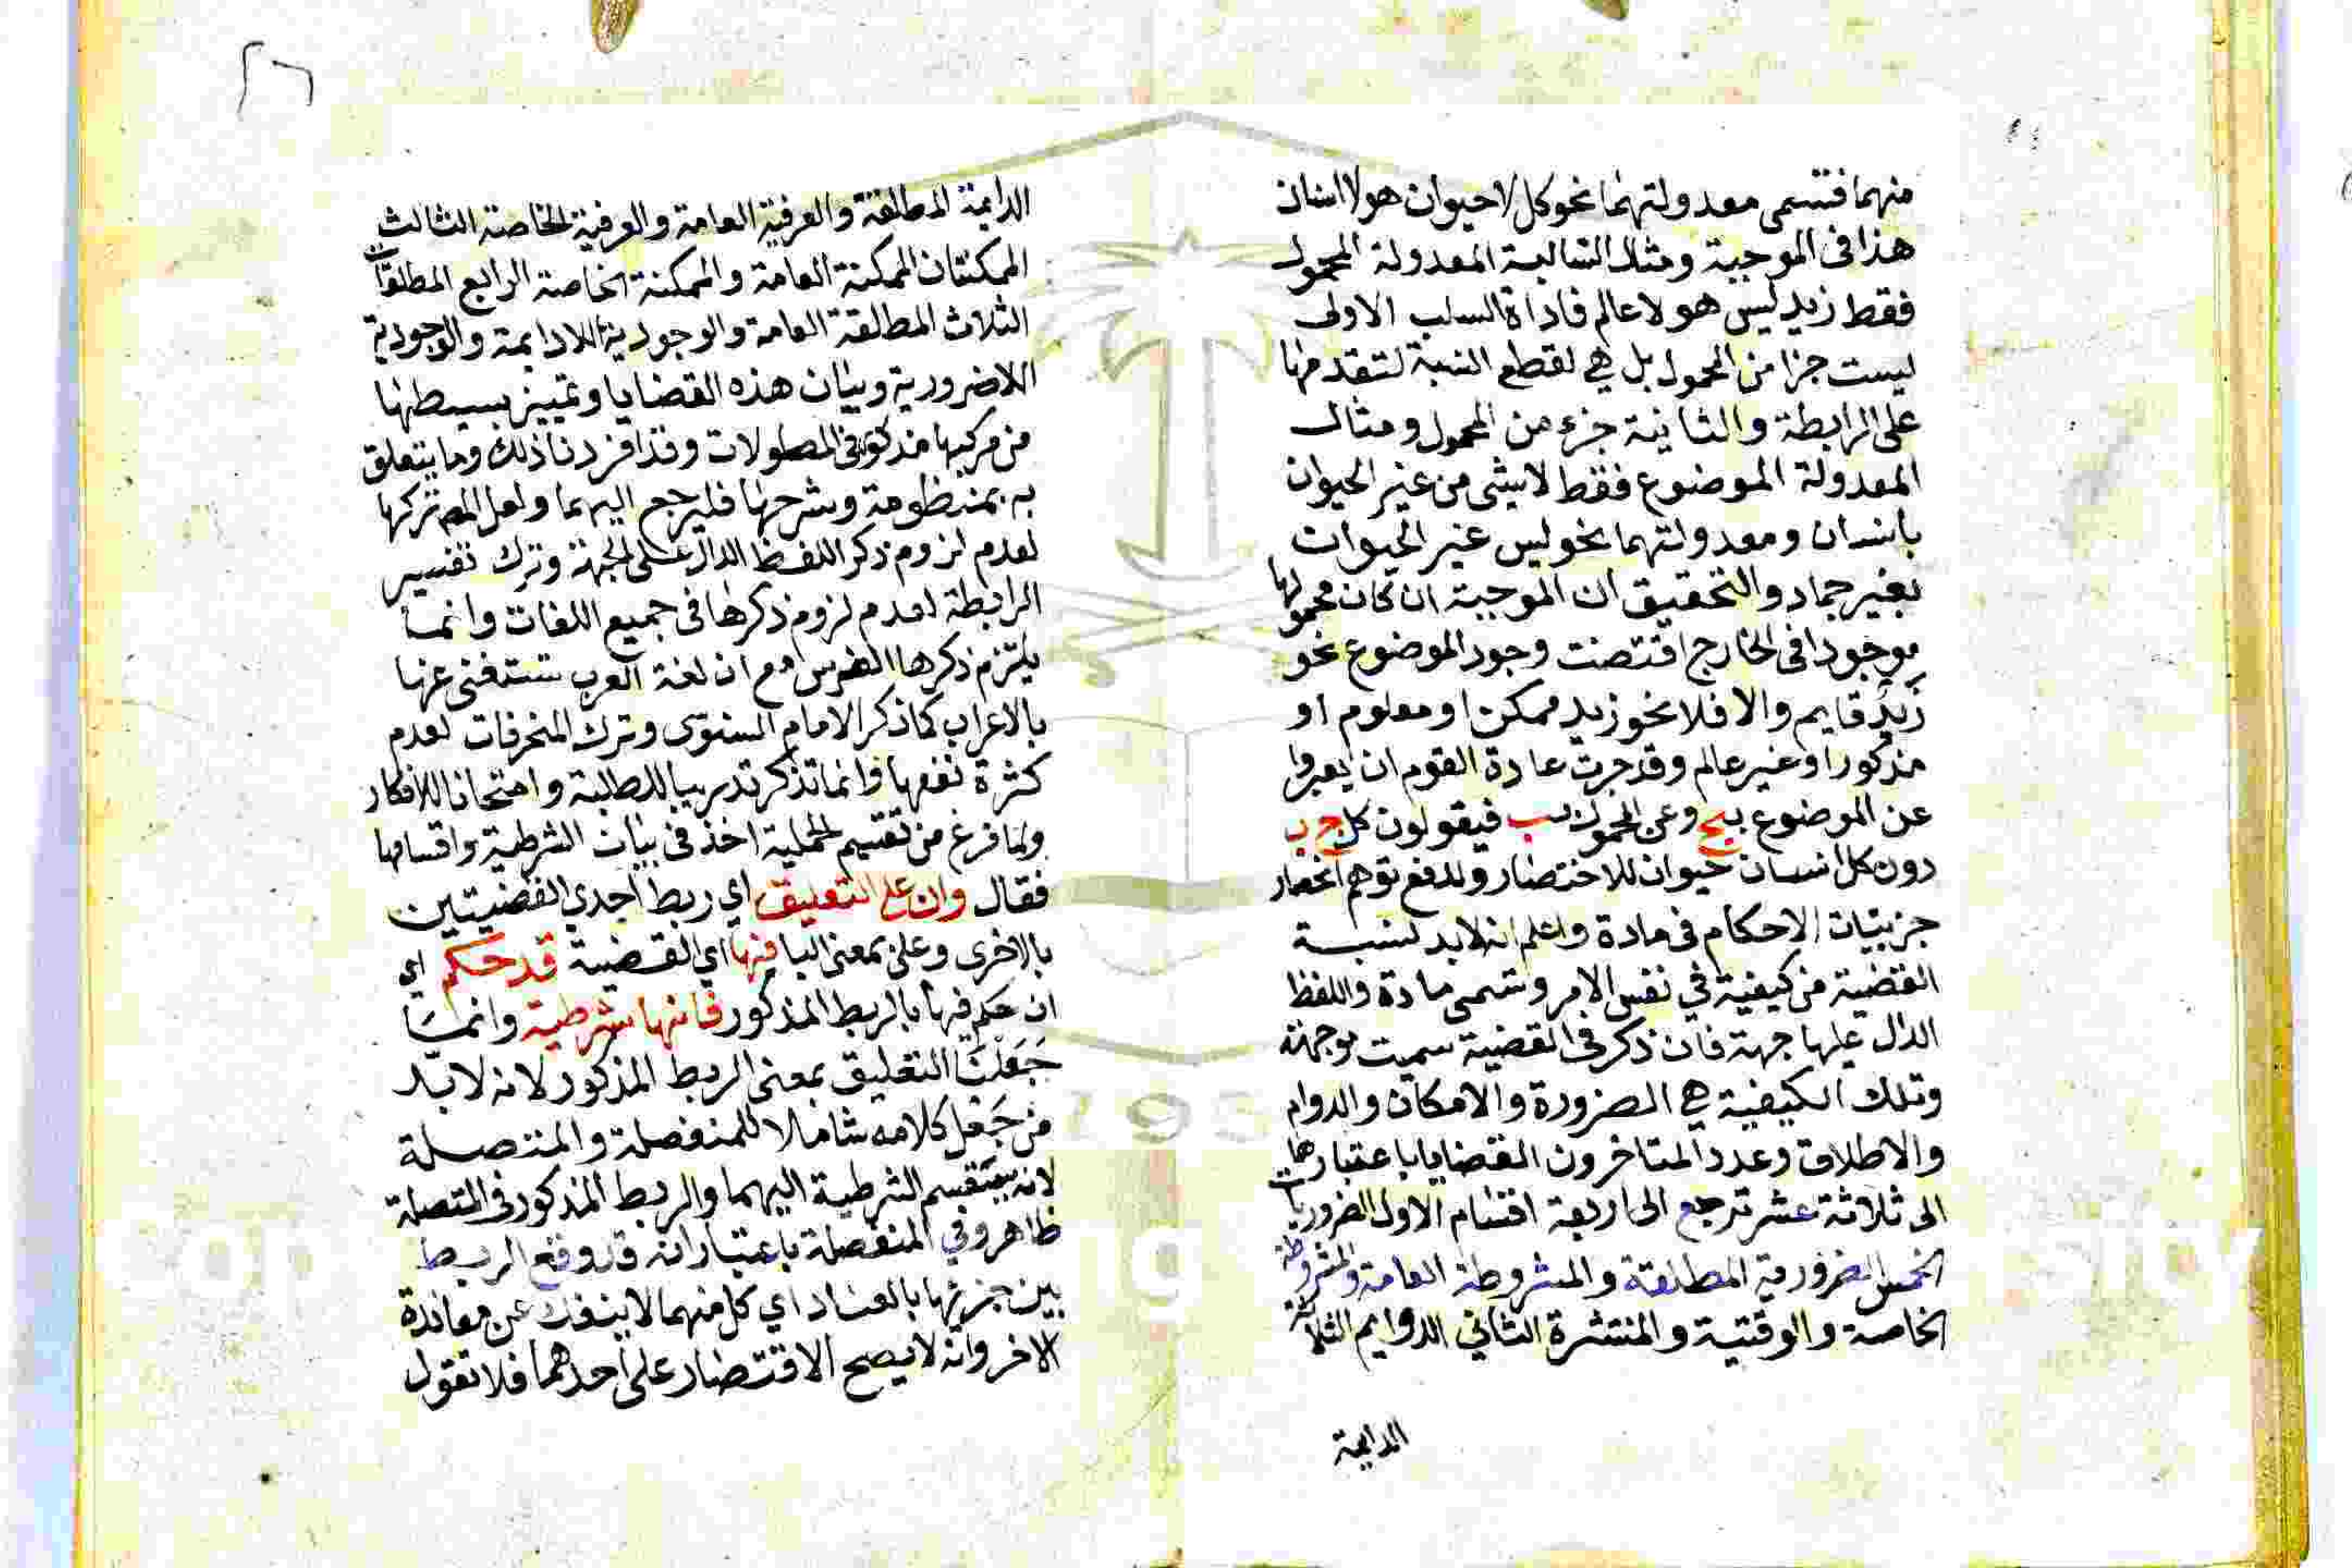 منهما فتسمى معدولتهما نحو كل لاحيوان هو لا انسان
هذا فى الموجبة ومثال السالبة المعدولة المحمول
فقط زيد ليس هو لا عالم فاداة السلب الاولى
ليست جزا من المحمول بل هي لقطع النسبة لتقدمها
على الرابطة والثانية جزء من المحمول ومثال
المعدولة الموضوع فقط لا شى من غير الحيوان
بانسان ومعدولتهما نحو ليس غير الحيوان
بغير جماد والتحقيق ان الموجبة ان كان محمولها
موجودا فى الخارج اقتضت وجود الموضوع نحو
زيد قايم والا فلا نحو زيد ممكن او معلوم او
مذكور او غير عالم وقد جرت عادة القوم ان يعبروا
عن الموضوع بج وعن المحمول بب فيقولون كل ج ب
دون كل انسان حيوان للاختصار ولدفع توهم انحصار
جزئيات الاحكام فى مادة واعلم انه لابد لنسبة
القضية من كيفية في نفس الامر وتسمى مادة واللفظ
الدال عليها جهة فان ذكر فى القضية سميت موجهة
وتلك الكيفية هي الضرورة والامكان والدوام
والاطلاق وعدد المتاخرون القضايا باعتبارها
الى ثلاثة عشر ترجع الى اربعة اقسام الاول الضروريات
الخمس الضرورية المطلقة والمشروطة العامة والمشروطة
الخاصة والوقتية والمنتشرة الثاني الدوايم الثلاثة
الدايمة
الدايمة المطلقة والعرفية العامة والعرفية الخاصة الثالث
الممكنتان الممكنة العامة والممكنة الخاصة الرابع المطلقات
الثلاث المطلقة العامة والوجودية اللادايمة والوجودية
اللاضرورية وبيان هذه القضايا وتمييز بسيطها
من مركبها مذكور فى المطولات وقد افردنا ذلك وما يتعلق
به بمنظومة وشرحها فليرجع اليهما ولعل المص تركها
لعدم لزوم ذكر اللفظ الدال على الجهة وترك تفسير
الرابطة لعدم لزوم ذكرها فى جميع اللغات وانما
يلتزم ذكرها الفرس مع ان لغة العرب تستغنى عنها
بالاعراب كما ذكر الامام السنوى وترك المنحرفات لعدم
كثرة نفعها وانما تذكر تدريبا للطلبة وامتحانا للافكار
ولما فرغ من تقسيم الحملية اخذ فى بيان الشرطية واقسامها
فقال وان على التعليق اي ربط احدي القضيتين
بالاخرى وعلى بمعنى البا فيها اي القضية قد حكم اي
ان حكم فيها بالربط المذكور فانها شرطية وانما
جعلت التعليق بمعنى الربط المذكور لانه لابد
من جعل كلامه شاملا للمنفصلة والمتصلة
لانه تقسم الشرطية اليهما والربط المذكور فى المتصلة
ظاهر وفي المنفصلة باعتبار انه قد وقع الربط
بين جزئها بالعناد اي كل منهما لا ينفك عن معاندة
الاخر وانه لا يصح الاقتصار على احدهما فلا تقول